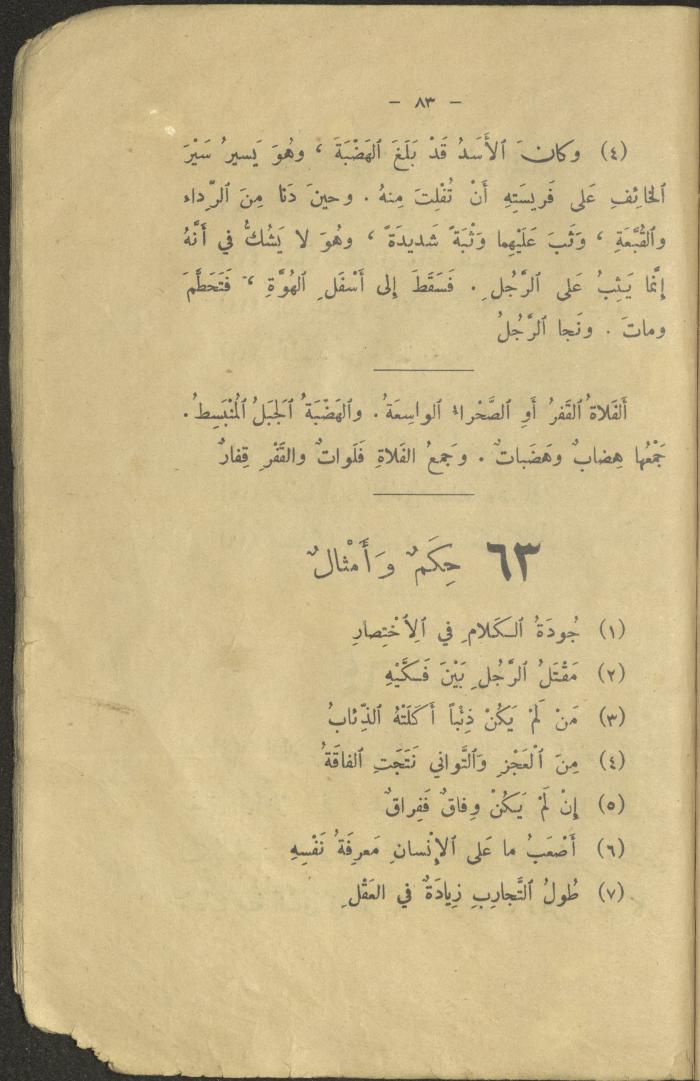 – ٨٣ –
(٤) وكانَ ٱلأَسَدُ قَدْ بَلَغَ ٱلهَضْبَةَ ، وهُوَ يَسيرُ سَيْرَ
ٱلخائِفِ عَلى فَريسَتِهِ أَنْ تُفْلِتَ مِنهُ . وحينَ دَنا مِنَ ٱلرِّداء
وٱلقُبَّعَةِ ، وَثَبَ عَلَيْهِما وَثْبَةً شَديدَةً ، وهُوَ لا يَشُكُّ في أَنَّهُ
إِنَّما يَثِبُ عَلى ٱلرَّجُلِ . فَسَقَطَ إِلى أَسْفَلِ ٱلهُوَّةِ ، فَتَحَطَّمَ
وماتَ . ونَجا ٱلرَّجُلُ
أَلفَلاةُ ٱلقَفرُ أَوِ ٱلصَّحْراءُ ٱلواسِعَةُ . وٱلهَضْبَةُ ٱلجَبَلُ ٱلمُنْبَسِطُ .
جَمْعُها هِضابٌ وهَضَباتٌ . وجَمعُ الفَلاةِ فَلَواتٌ والقَفْرِ قِفارٌ
٦٣ حِكَمٌ وَأَمْثالٌ
(١) جُودَةُ ٱلكَلامِ في ٱلِٱخْتِصارِ
(٢) مَقْتَلُ ٱلرَّجُلِ بَيْنَ فَكَّيْهِ
(٣) مَنْ لَمْ يَكُنْ ذِئْباً أَكَلَتْهُ ٱلذِّئابُ
(٤) مِنَ ٱلْعَجْزِ وَٱلتَّواني نَتَجَتِ ٱلفاقَةُ
(٥) إِنْ لَمْ يَكُنْ وِفاقٌ فَفِراقٌ
(٦) أَصْعَبُ ما عَلى ٱلإِنْسانِ مَعرِفَةُ نَفْسِهِ
(٧) طُولُ ٱلتَّجارِبِ زِيادَةٌ في العَقْلِ